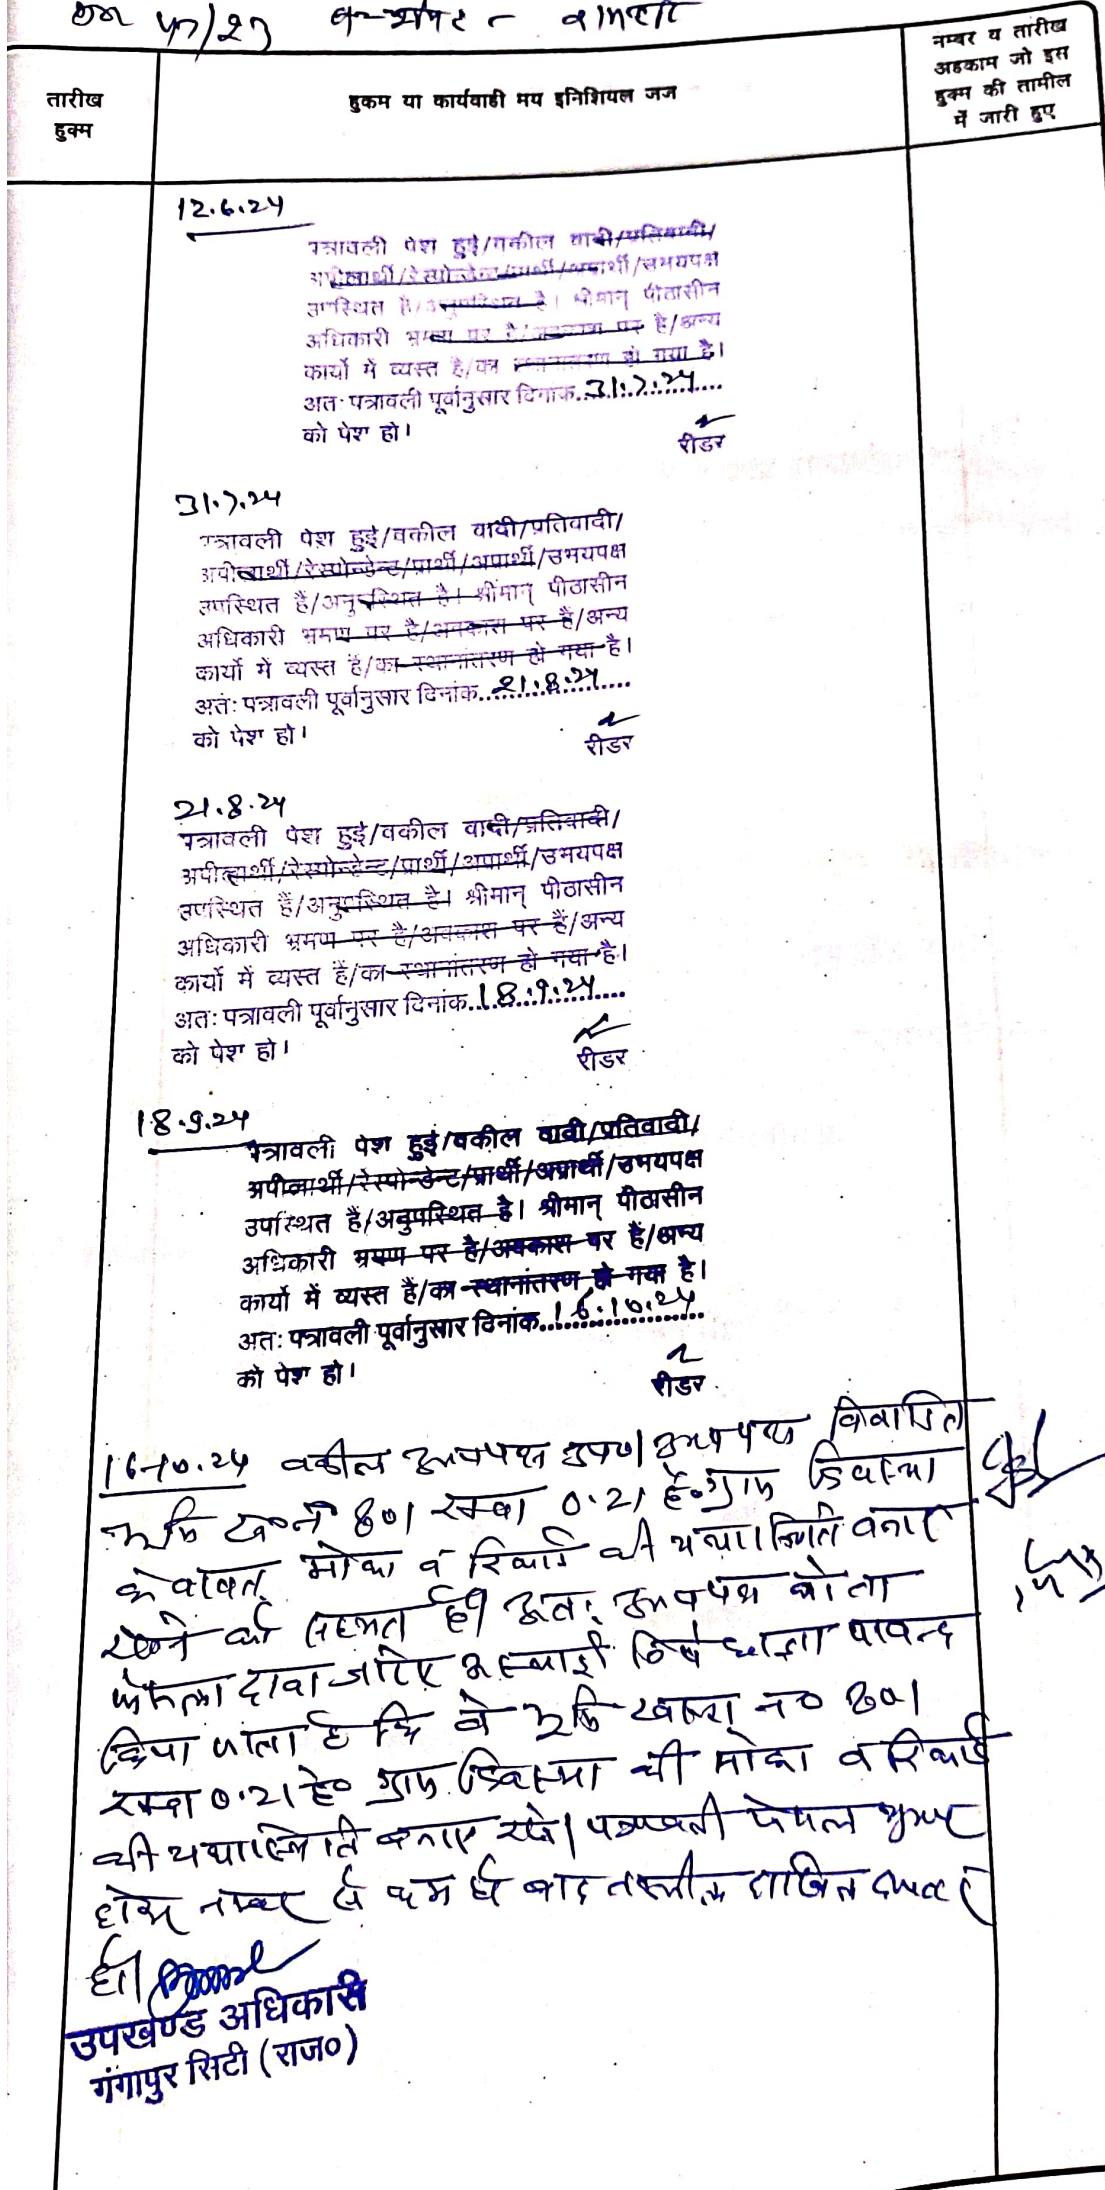 तारीख
हुक्म
हुकम या कार्यवाही मय इनिशियल जज
नम्बर व तारीख
अहकाम जो इस
हुक्म की तामील
में जारी हुए
12.6.24
पत्रावली पेश हुई/वकील वादी/प्रतिवादी/
अपीलार्थी/रेस्पोन्डेन्ट/प्रार्थी/अप्रार्थी/उभयपक्ष
उपस्थित हैं/अनुपस्थित है। श्रीमान् पीठासीन
अधिकारी भ्रमण पर है/अवकाश पर है/अन्य
कार्यो में व्यस्त है/का स्थानांतरण हो गया है।
अतः पत्रावली पूर्वानुसार दिनांक..31.7.24....
को पेश हो।
रीडर
31.7.24
पत्रावली पेश हुई/वकील वादी/प्रतिवादी/
अपीलार्थी/रेस्पोन्डेन्ट/प्रार्थी/अप्रार्थी/उभयपक्ष
उपस्थित हैं/अनुपस्थित है। श्रीमान् पीठासीन
अधिकारी भ्रमण पर है/अवकाश पर हैं/अन्य
कार्यो में व्यस्त हैं/का स्थानांतरण हो गया है।
अतः पत्रावली पूर्वानुसार दिनांक..21.8.24....
को पेश हो।
रीडर
21.8.24
पत्रावली पेश हुई/वकील वादी/प्रतिवादी/
अपीलार्थी/रेस्पोन्डेन्ट/प्रार्थी/अप्रार्थी/उभयपक्ष
उपस्थित हैं/अनुपस्थित है। श्रीमान् पीठासीन
अधिकारी भ्रमण पर है/अवकाश पर हैं/अन्य
कार्यो में व्यस्त हैं/का स्थानांतरण हो गया है।
अतः पत्रावली पूर्वानुसार दिनांक..18.9.24....
को पेश हो।
रीडर
18.9.24
पत्रावली पेश हुई/वकील वादी/प्रतिवादी/
अपीलार्थी/रेस्पोन्डेन्ट/प्रार्थी/अप्रार्थी/उभयपक्ष
उपस्थित हैं/अनुपस्थित है। श्रीमान् पीठासीन
अधिकारी भ्रमण पर है/अवकाश पर हैं/अन्य
कार्यो में व्यस्त हैं/का स्थानांतरण हो गया है।
अतः पत्रावली पूर्वानुसार दिनांक..16.10.24....
को पेश हो।
रीडर
16-10.24 वकील उभयपक्ष उप० उभयपक्ष विवादित
भूमि ख०नं 801 रकबा 0.21 है० ग्राम
के बाबत् मोका व रिकार्ड की यथास्थिति बनाए
रखने को सहमत है। अतः उभयपक्ष को ता
फैसला दावा जरिए अस्थाई निषेधाज्ञा पाबन्द
किया जाता है कि वे भूमि खसरा न० 801
रकबा 0.21 है० ग्राम की मोका व रिकार्ड
की यथास्थिति बनाए रखे। पत्रावली फैसल शुमार
होकर नम्बर से कम हो बाद तकमील दाखिल दफ्तर
हो।
उपखण्ड अधिकारी
गंगापुर सिटी (राज०)